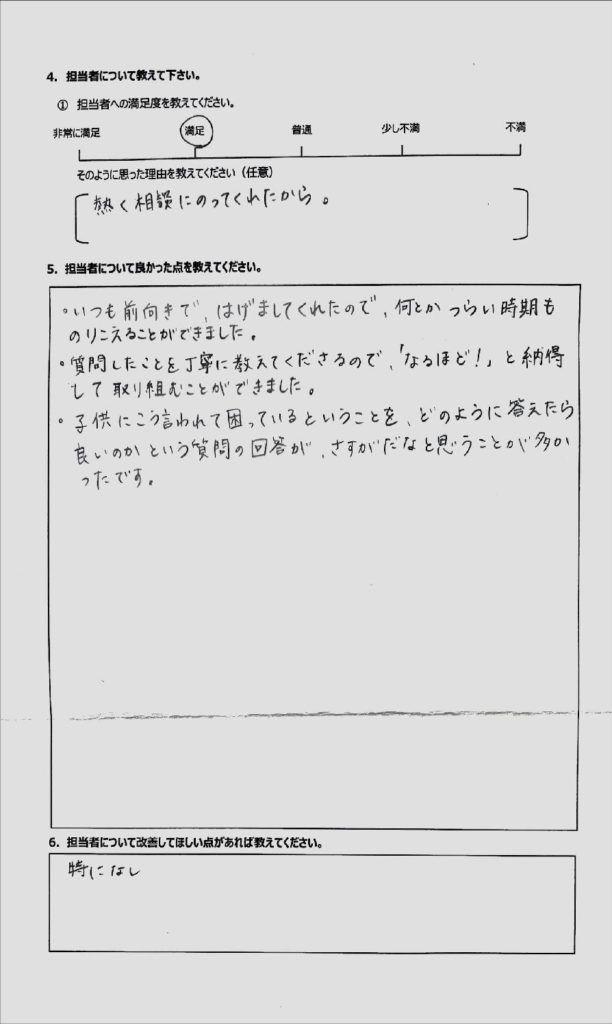 4. 担当者について教えて下さい。
① 担当者への満足度を教えてください。
非常に満足 満足 普通 少し不満 不満
そのように思った理由を教えてください（任意）
熱く相談にのってくれたから。
5. 担当者について良かった点を教えてください。
・いつも前向きで、はげましてくれたので、何とかつらい時期も
のりこえることができました。
・質問したことを丁寧に教えてくださるので、「なるほど！」と納得
して取り組むことができました。
・子供にこう言われて困っているということを、どのように答えたら
良いのかという質問の回答が、さすがだなと思うことが多か
ったです。
6. 担当者について改善してほしい点があれば教えてください。
特になし